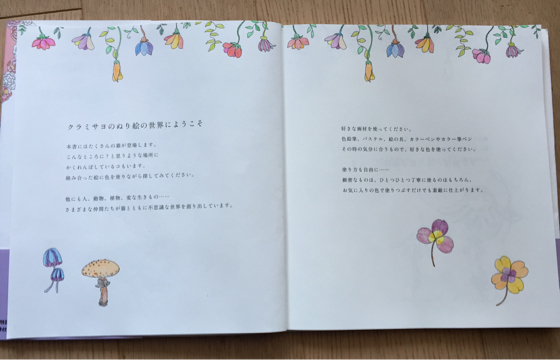 クラミサヨのぬり絵の世界にようこそ
本書にはたくさんの猫が登場します。
こんなところに?と思うような場所に
かくれんぼしているコもいます。
絡み合った絵に色を塗りながら探してみてください。
他にも人、動物、植物、変な生きもの……
さまざまな仲間たちが猫とともに不思議な世界を創り出しています。
好きな画材を使ってください。
色鉛筆、パステル、絵の具、カラーペンやカラー筆ペン
その時の気分に合うものを、好きな色を使ってください。
塗り方も自由に……
緻密なものは、ひとつひとつ丁寧に塗るのはもちろん、
お気に入りの色で塗りつぶすだけでも素敵に仕上がります。